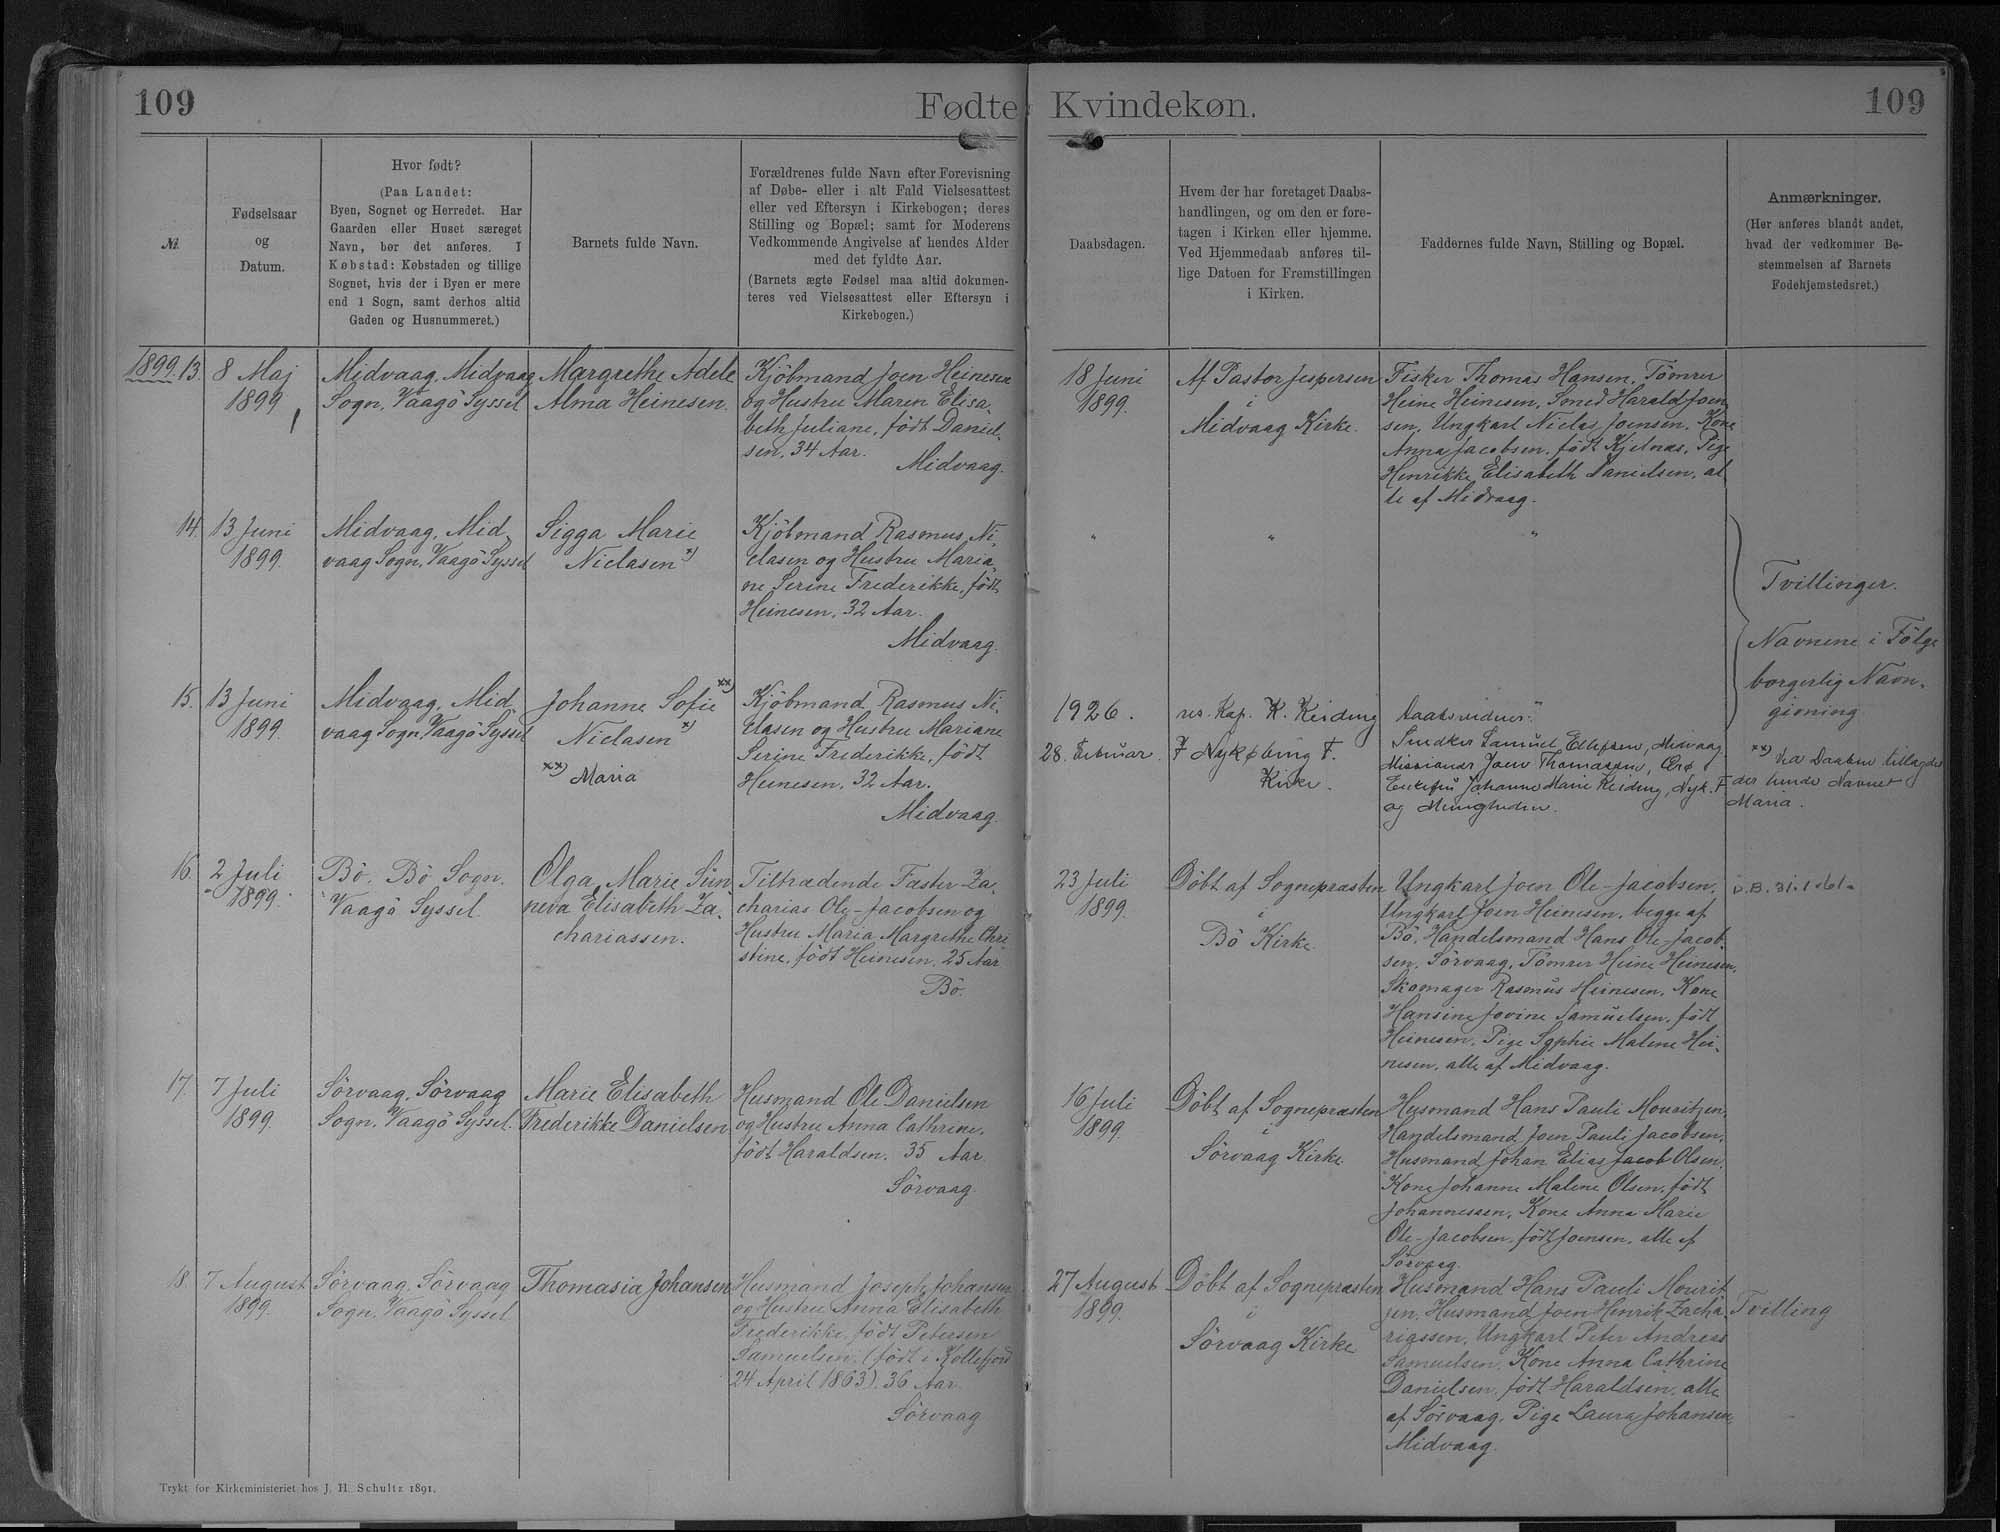 109
Fødte Kvindekøn.
109
№
Fødselsaar
og
Datum.
Hvor født?
(Paa Landet:
Byen, Sognet og Herredet. Har
Gaarden eller Huset særeget
Navn, bør det anføres. I
Købstad: Købstaden og tillige
Sognet, hvis der i Byen er mere
end 1 Sogn, samt derhos altid
Gaden og Husnummeret.)
Barnets fulde Navn.
Forældrenes fulde Navn efter Forevisning
af Døbe- eller i alt Fald Vielsesattest
eller ved Eftersyn i Kirkebogen; deres
Stilling og Bopæl; samt for Moderens
Vedkommende Angivelse af hendes Alder
med det fyldte Aar.
(Barnets ægte Fødsel maa altid dokumen-
teres ved Vielsesattest eller Eftersyn i
Kirkebogen.)
Daabsdagen.
Hvem der har foretaget Daabs-
handlingen, og om den er fore-
tagen i Kirken eller hjemme.
Ved Hjemmedaab anføres til-
lige Datoen for Fremstillingen
i Kirken.
Faddernes fulde Navn, Stilling og Bopæl.
Anmærkninger.
(Her anføres blandt andet,
hvad der vedkommer Be-
stemmelsen af Barnets
Fødehjemstedsret.)
1899. 13.
8 Maj
1899
Midvaag, Midvaag
Sogn, Vaagö Syssel
Margrethe Adele
Alma Heinesen.
Kjöbmand Joen Heinesen
og Hustru Maren Elisa-
beth Juliane, födt Daniel-
sen, 34 Aar.
Midvaag.
18 Juni
1899.
Af Pastor Jespersen
i
Midvaag Kirke.
Fisker Thomas Hansen, Tömrer
Heine Heinesen, Smed Harald Joen-
sen, Ungkarl Niclas Joensen, Kone
Anna Jacobsen, födt Kjelnæs, Pige
Henrikke Elisabeth Danielsen, al-
le af Midvaag.
14.
13 Juni
1899.
Midvaag, Mid-
vaag Sogn, Vaagö Syssel
Sigga Marie
Niclasen x)
Kjöbmand Rasmus Ni-
clasen og Hustru Maria-
ne Serine Frederikke, födt
Heinesen, 32 Aar.
Midvaag.
"
"
"
Tvillinger.
Navnene i Fölge
borgerlig Navn-
givning
15.
13 Juni
1899.
Midvaag, Mid-
vaag Sogn, Vaagö Syssel
Johanne Sofie xx)
Niclasen x)
xx) Maria
Kjöbmand Rasmus Ni-
clasen og Hustru Mariane
Serine Frederikke, födt
Heinesen, 32 Aar.
Midvaag.
1926.
28. Februar.
res. Kap. K. Keiding
F Nykøbing F.
Kirke.
Daabsvidner:
Snedker Samuel Ellefsen, Midvaag
Missionær Joen Thomassen,
Johanne Marie Keiding, Nyk. F
og Menigheden.
xx) Ved Daaben tillagdes
der hende Navnet
Maria.
16.
2 Juli
1899.
Bö, Bö Sogn,
Vaagö Syssel
Olga Marie Sün-
neva Elisabeth Za-
chariassen.
Tiltrædende Fæster Za-
charias Ole-Jacobsen og
Hustru Maria Margrethe Chri-
stine, födt Heinesen, 25 Aar
Bö.
23 Juli
1899.
Döbt af Sognepræsten
i
Bö Kirke.
Ungkarl Joen Ole-Jacobsen,
Ungkarl Joen Heinesen, begge af
Bö, Handelsmand Hans Ole-Jacob-
sen, Sörvaag, Tömrer Heine Heinesen,
Skomager Rasmus Heinesen, Kone
Hansine Jovine Samuelsen, födt
Heinesen, Pige Sophie Malene Hei-
nesen, alle af Midvaag.
17.
7 Juli
1899.
Sörvaag, Sörvaag
Sogn, Vaagö Syssel.
Marie Elisabeth
Frederikke Danielsen
Husmand Ole Danielsen
og Hustru Anna Cathrine,
födt Haraldsen, 35 Aar.
Sörvaag.
16 Juli
1899.
Döbt af Sognepræsten
i
Sörvaag Kirke.
Husmand Hans Pauli Mouritzen,
Handelsmand Joen Pauli Jacobsen,
Husmand Johan Elias Jacob Olsen,
Kone Johanne Malene Olsen, födt
Johannessen, Kone Anna Marie
Ole-Jacobsen, födt Joensen, alle af
Sörvaag.
18
7 August
1899.
Sörvaag, Sörvaag
Sogn, Vaagö Syssel
Thomasia Johansen
Husmand Joseph Johansen
og Hustru Anna Elisabeth
Frederikke, födt Petersen
Samuelsen, (födt i Kollefjord
24 April 1863). 36 Aar.
Sörvaag
27 August
1899.
Döbt af Sognepræsten
i
Sörvaag Kirke
Husmand Hans Pauli Mourit-
zen, Husmand Joen Henrik Zacha-
riassen, Ungkarl Peter Andreas
Samuelsen, Kone Anna Cathrine
Danielsen, födt Haraldsen, alle
af Sörvaag, Pige Laura Johansen,
Midvaag.
Tvilling
Trykt for Kirkeministeriet hos J. H. Schultz 1891.